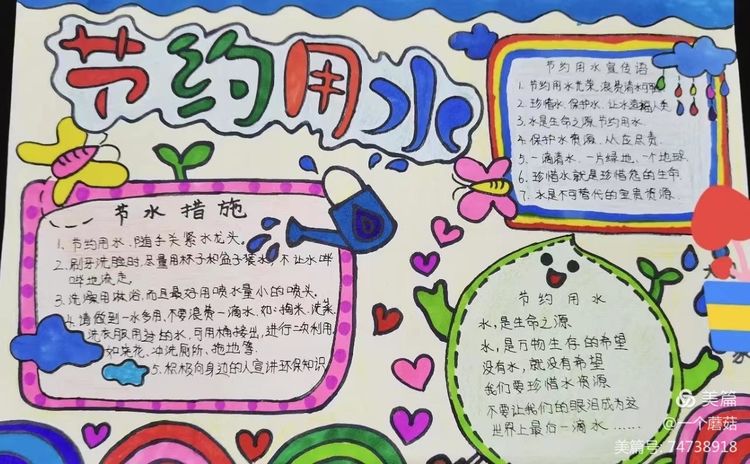 节约用水
节约用水宣传语
1. 节约用水光荣,浪费清水可耻
2. 珍惜水、保护水、让水造福人类
3. 水是生命之源,节约用水.
4. 保护水资源、人人应尽责.
5. 一滴清水、一片绿地、一个地球
6. 珍惜水就是珍惜您的生命
7. 水是不可替代的宝贵资源
节水措施
1. 节约用水、随手关紧水龙头.
2. 刷牙洗脸时,尽量用杯子和盆子装水,不让水哗
哗地流走.
3. 洗澡用淋浴,而且最好用喷水量小的喷头.
4. 请做到一水多用,不要浪费一滴水.如:淘米、洗菜、
洗衣服用过的水,可用桶接出,进行二次利用,
如菜花、冲洗厕所、拖地等.
5. 积极向身边的人宣讲环保知识
节约用水
水,是生命之源
水,是万物生存的希望
没有水,就没有希望
我们要珍惜水资源
不要让我们的眼泪成为这
世界上最后一滴水……
美篇
@一个蘑菇
美篇号:74738918